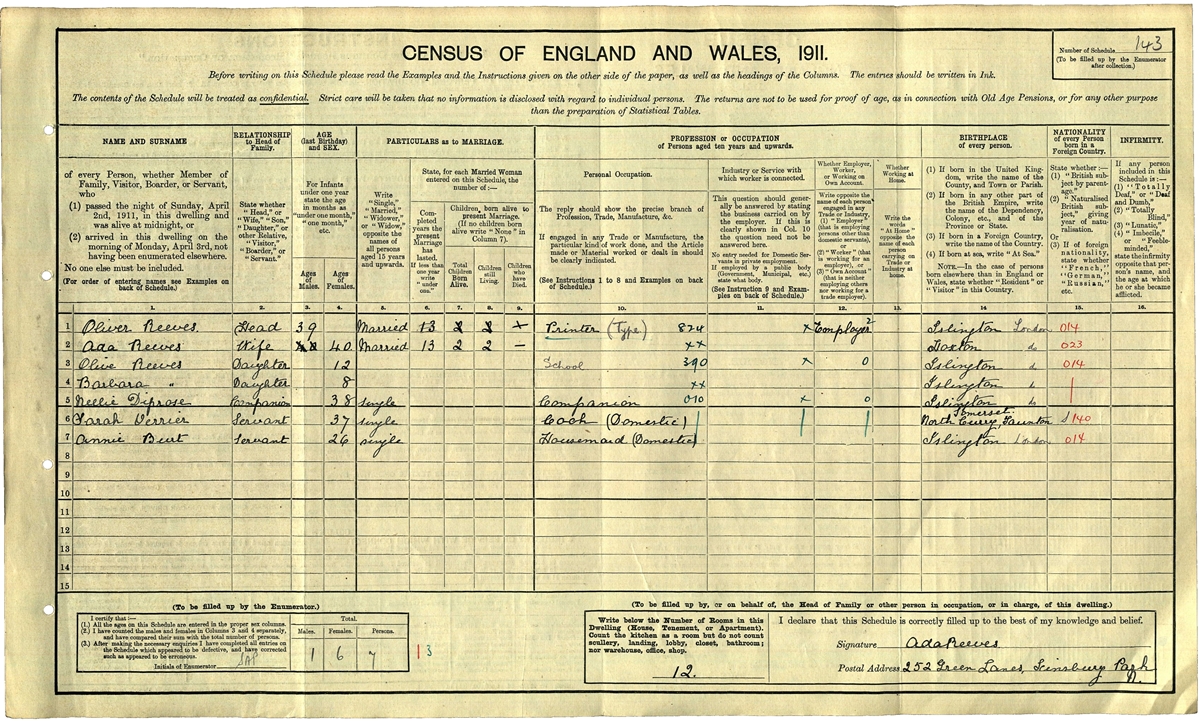 CENSUS OF ENGLAND AND WALES, 1911.
Number of Schedule 143
(To be filled up by the Enumerator
after collection.)
Before writing on this Schedule please read the Examples and the Instructions given on the other side of the paper, as well as the headings of the Columns. The entries should be written in Ink.
The contents of the Schedule will be treated as confidential. Strict care will be taken that no information is disclosed with regard to individual persons. The returns are not to be used for proof of age, as in connection with Old Age Pensions, or for any other purpose
than the preparation of Statistical Tables.
NAME AND SURNAME
of every Person, whether Member of
Family, Visitor, Boarder, or Servant,
who
(1) passed the night of Sunday, April
2nd, 1911, in this dwelling and
was alive at midnight, or
(2) arrived in this dwelling on the
morning of Monday, April 3rd, not
having been enumerated elsewhere.
No one else must be included.
(For order of entering names see Examples on
back of Schedule.)
RELATIONSHIP
to Head of
Family.
State whether
"Head," or
"Wife," "Son,"
"Daughter," or
other Relative,
"Visitor,"
"Boarder," or
"Servant."
AGE
(last Birthday)
and SEX.
For Infants
under one year
state the age
in months as
"under one month,"
"one month,"
etc.
Ages
of
Males.
Ages
of
Females.
PARTICULARS as to MARRIAGE.
Write
"Single,"
"Married,"
"Widower,"
or "Widow,"
opposite the
names of
all persons
aged 15 years
and upwards.
State, for each Married Woman
entered on this Schedule, the
number of:—
Completed
years the
present
Marriage
has
lasted.
If less than
one year
write
"under
one."
Children, born alive to
present Marriage.
(If no children born
alive write "None" in
Column 7).
Total
Children
Born
Alive.
Children
still
Living.
Children
who
have
Died.
PROFESSION or OCCUPATION
of Persons aged ten years and upwards.
Personal Occupation.
The reply should show the precise branch of
Profession, Trade, Manufacture, &c.
If engaged in any Trade or Manufacture, the
particular kind of work done, and the Article
made or Material worked or dealt in should
be clearly indicated.
(See Instructions 1 to 8 and Examples on back
of Schedule.)
Industry or Service with
which worker is connected.
This question should gener-
ally be answered by stating
the business carried on by
the employer. If this is
clearly shown in Col. 10
the question need not be
answered here.
No entry needed for Domestic Ser-
vants in private employment.
If employed by a public body
(Government, Municipal, etc.)
state what body.
(See Instruction 9 and Exam-
ples on back of Schedule.)
Whether Employer,
Worker,
or Working on
Own Account.
Write opposite the
name of each person
engaged in any
Trade or Industry,
(1) "Employer"
(that is employing
persons other than
domestic servants),
or
(2) "Worker" (that
is working for an
employer), or
(3) "Own Account"
(that is neither
employing others
nor working for a
trade employer).
Whether
Working at
Home.
Write the
words
"At Home"
opposite the
name of each
person
carrying on
Trade or
Industry at
home.
BIRTHPLACE
of every person.
(1) If born in the United King-
dom, write the name of the
County, and Town or Parish.
(2) If born in any other part of
the British Empire, write
the name of the Dependency,
Colony, etc., and of the
Province or State.
(3) If born in a Foreign Country,
write the name of the Country.
(4) If born at sea, write "At Sea."
NOTE.—In the case of persons
born elsewhere than in England or
Wales, state whether "Resident" or
"Visitor" in this Country.
NATIONALITY
of every Person
born in a
Foreign Country.
State whether:—
(1) "British sub-
ject by parent-
age,"
(2) "Naturalised
British sub-
ject," giving
year of natu-
ralisation.
Or
(3) If of foreign
nationality,
state whether
"French,"
"German,"
"Russian,"
etc.
INFIRMITY.
If any person
included in this
Schedule is:—
(1) "Totally
Deaf," or "Deaf
and Dumb,"
(2) "Totally
Blind,"
(3) "Lunatic,"
(4) "Imbecile,"
or "Feeble-
minded,"
state the infirmity
opposite that per-
son's name, and
the age at which
he or she became
afflicted.
1. 2. 3. 4. 5. 6. 7. 8. 9. 10. 11. 12. 13. 14 15. 16.
1 Oliver Reeves. Head 39 Married 13 2 2 Printer (Type) 824 × Employer 2 Islington London 014
2 Ada Reeves Wife 40 Married 13 2 2 — ×× Hoxton do 023
3 Olive Reeves Daughter 12 School 390 × 0 Islington do 014
4 Barbara " Daughter 8 ×× Islington do
5 Nellie Diprose Companion 38 single Companion 010 × 0 Islington do
6 Sarah Verrier Servant 37 single Cook (Domestic) Somerset. North Curry, Taunton 140
7 Annie Burt Servant 26 single Housemaid (Domestic) Islington London 014
8
9
10
11
12
13
14
15
(To be filled up by the Enumerator.)
I certify that:—
(1.) All the ages on this Schedule are entered in the proper sex columns.
(2.) I have counted the males and females in Columns 3 and 4 separately,
and have compared their sum with the total number of persons.
(3.) After making the necessary enquiries I have completed all entries on
the Schedule which appeared to be defective, and have corrected
such as appeared to be erroneous.
Initials of Enumerator
Total.
Males. Females. Persons.
1 6 7
13
(To be filled up by, or on behalf of, the Head of Family or other person in occupation, or in charge, of this dwelling.)
Write below the Number of Rooms in this
Dwelling (House, Tenement, or Apartment).
Count the kitchen as a room but do not count
scullery, landing, lobby, closet, bathroom;
nor warehouse, office, shop.
12.
I declare that this Schedule is correctly filled up to the best of my knowledge and belief.
Signature Ada Reeves
Postal Address 252 Green Lanes, Finsbury Park
N.